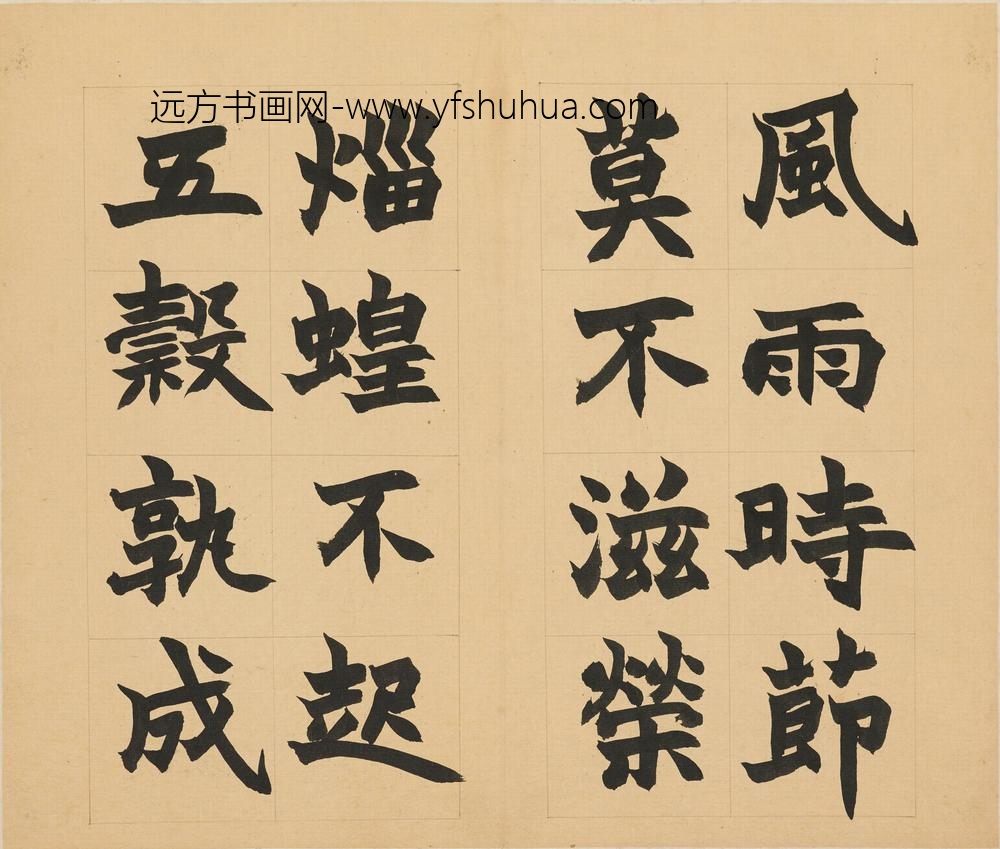 远方书画网-www.yfshuhua.com
風雨時節
莫不滋榮
𤟥蝗不起
五穀孰成